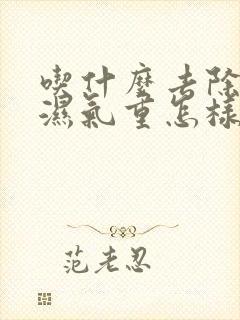 喫什麼去除
濕氣重怎樣
范老忍